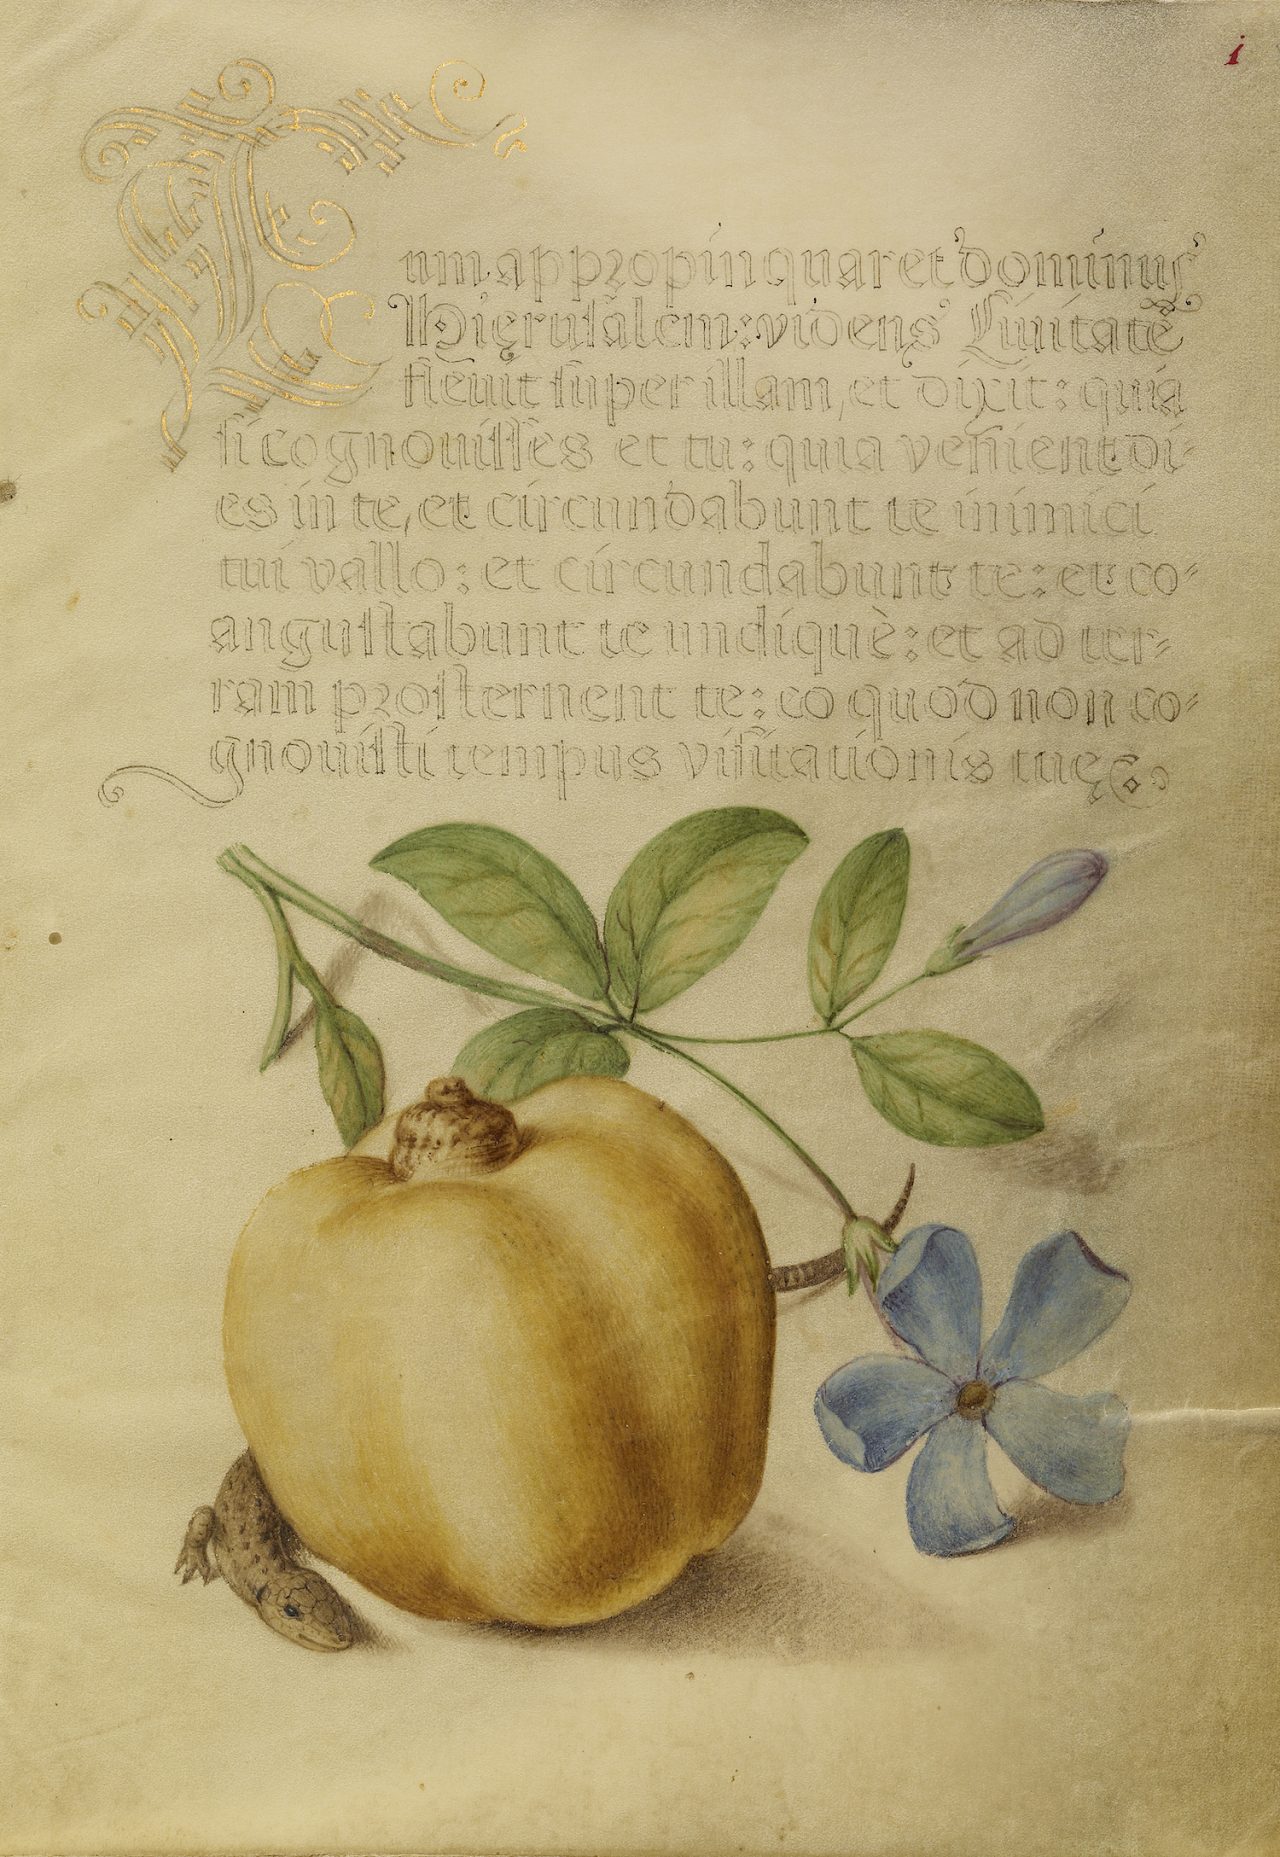 i
Cum appropinquaret dominus
Hierusalem: videns Civitatē
flevit super illam, et dixit: quia
si cognouisses et tu: quia venient di-
es in te, et circundabunt te inimici
tui vallo: et circundabunt te: et co-
angustabunt te undiquè: et ad ter-
ram prosternent te: eo quod non co-
gnouisti tempus visitationis tuę.